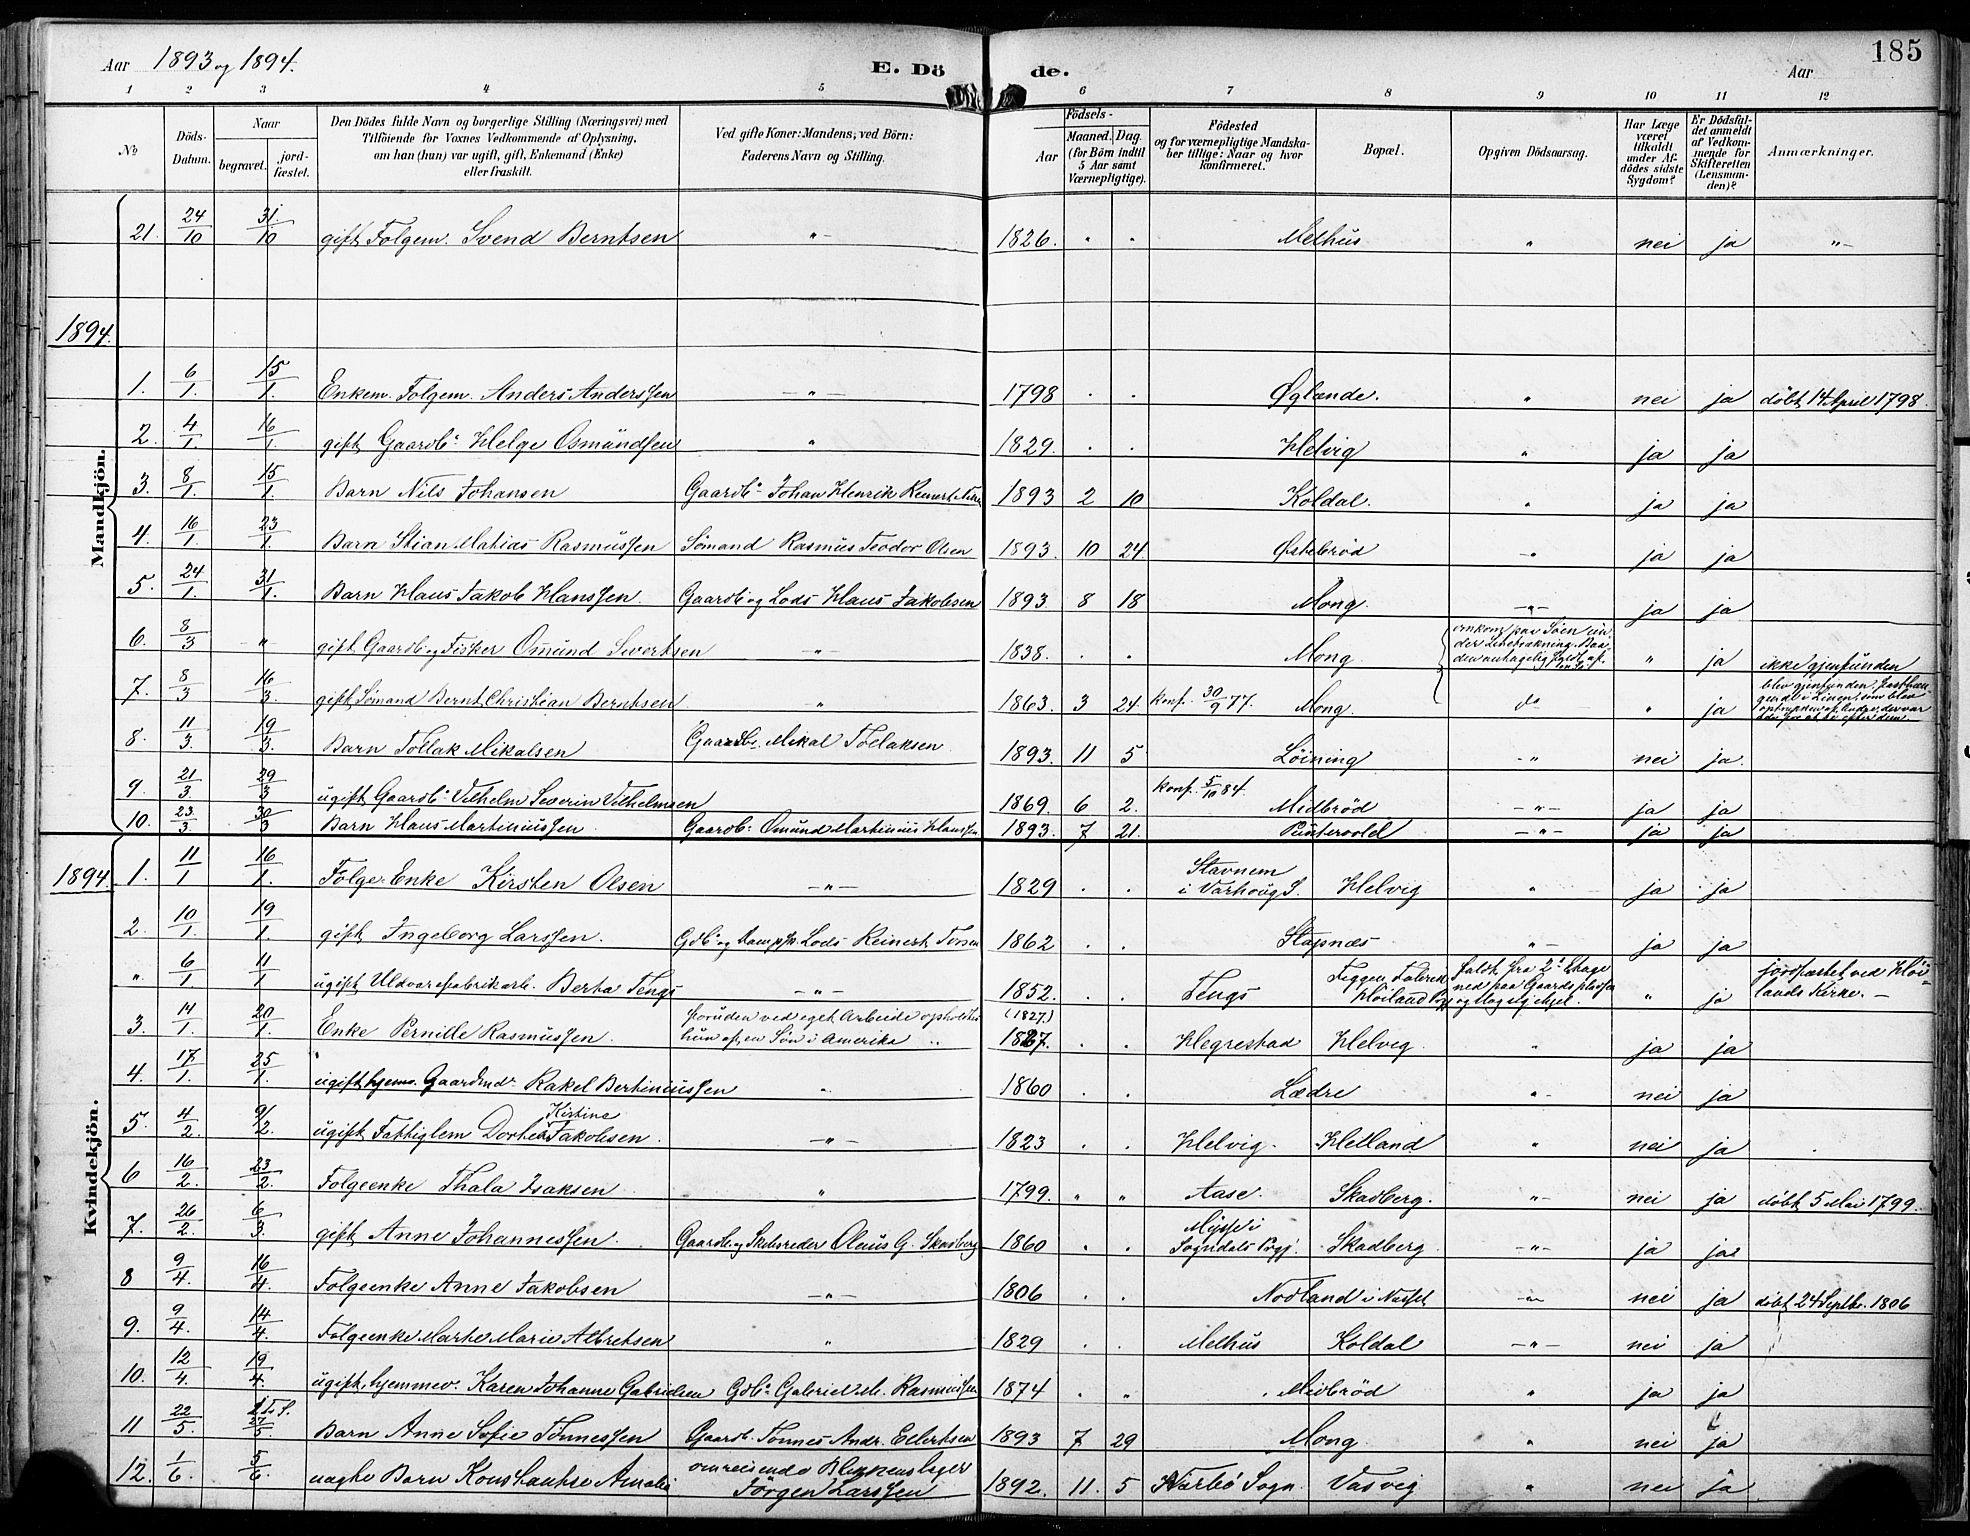 185
Aar 1893 og 1894. E. Dö de. Aar
1 2 3 4 5 6 7 8 9 10 11 12
No
Döds-Datum.
Naar
begravet. jord-fæstet.
Den Dödes fulde Navn og borgerlige Stilling (Næringsvei) med
Tilföiende for Voxnes Vedkommende af Oplysning,
om han (hun) var ugift, gift, Enkemand (Enke)
eller fraskilt.
Ved gifte Koner: Mandens; ved Börn:
Faderens Navn og Stilling.
Födsels-
Aar Maaned. Dag.
(for Börn indtil
5 Aar samt
Værnepligtige).
Födested
og for værnepligtige Mandska-
ber tillige: Naar og hvor
konfirmeret.
Bopæl.
Opgiven Dödsaarsag.
Har Læge
været
tilkaldt
under Af-
dödes sidste
Sygdom?
Er Dödsfal-
det anmeldt
af Vedkom-
mende for
Skifteretten
(Lensman-
den)?
Anmærkninger.
Mandkjön.
21. 24/10 31./10 gift Folgem. Svend Berntsen " 1826. " " Melhus " nei ja "
1894.
1. 6/1. 15/1. Enkem. Folgem. Anders Anderssen " 1798 . . Øglænde. nei ja döbt 14 April 1798.
2. 4/1. 16/1. gift Gaardb. Helge Osmundsen " 1829. . . Helvig " ja ja
3. 8/1. 15/1. Barn Nils Johansen Gaardb. Johan Henrik 1893 2 10 Koldal. " ja ja
4. 16/1. 23/1. Barn Stian Matias Rasmussen Sømand Rasmus Teodor Olsen 1893. 10 24 Østebrød " ja ja
5. 24/1. 31/1. Barn Hans Jakob Hanssen. Gaardb. og Lods Hans Jakobsen 1893. 8 18 Mong. " ja ja
6. 8/3 " gift Gaardb. og Fisker Omund Sivertsen " 1838. . . Mong. omkom paa Søen un-
der " ja ikke gjenfunden
7. 8/3 16/3. gift Sømand Bernt Christian Berntsen " 1863. 3 24 konf. 30/9 77. Mong. do " ja blev gjenfunden,
8. 11/3. 19/3. Barn Tollak Mikalsen Gaardb. Mikal Tollaksen 1893. 11 5 Løining " nei ja.
9. 21/3. 29/3 ugift Gaardb. Vilhelm Severin Vilhelmsen 1869. 6 2. konf. 5/10 84. Midbrød " ja ja
10. 23/3. 30/3 Barn Hans Martiniussen Gaardb. Omund Martinius Hanssen 1893. 7 21. Puntervold " ja ja
Kvindekjön.
1894. 1. 11/1 16/1. Folge-Enke Kirsten Olsen " 1829 . . Stavnem
i Varhoug S. Helvig " ja ja
2. 10/1. 19/1. gift Ingeborg Larssen. Gdb. og Lods Reinert 1862 . . Stapnæs " ja ja
" 6/1 11/1 ugift Uldvarefabrikarb. Berta Tengs " 1852. . . Tengs Figgen Fabrik
Høiland faldt fra 2. Etage
ned paa Gaardspladsen
og slog sig ihjel. " ja jordfæstet ved Høi-
lands Kirke. -
3. 14/1 20/1. Enke Pernille Rasmussen foruden ved eget Arbeide opholdtes
hun af en Søn i Amerika (1827)
1827. . . Hegrestad Helvig " ja ja
4. 17/1. 25/1. ugift hjemv. Gaardmdr Rakel Bertiniussen " 1860 . . Lædre " nei ja
5. 4/2. 9/2. ugift Fattiglem Dorthea Kistine Jakobsen. " 1823 . . Helvig. Hetland " nei ja
6 16/2. 23/2. Folgeenke Thala Isaksen " 1799. " " Aase. Skadberg. " nei ja döbt 5 Mai 1799.
7. 26/2. 6/3. gift Anne Johannessen. Gaardb. og Skibsreder Olaus G. Skadberg 1860 . . Mysse i
Sogndals Prgj. Skadberg. " ja ja
8 9/4. 16/4. Folgeenke Anne Jakobsen " 1806 . . Nodland i " nei ja döbt 24 Septbr. 1806
9. 9/4. 14/4. Folgeenke Marte Marie Albretsen " 1829 . . Melhus Koldal " nei ja
10. 12/4. 19/4. ugift, hjemmev. Karen Johanne Gabrielsen Gdb. Gabriel M. Rasmussen 1874 . " Midbrød " ja ja
11 22/5. 27/5 Barn Anne Sofie Tønnessen Gaardb. Tønnes Andr. Eilertsen 1893 7 29 Mong " nei ja
12. 1/6. 5/6. uægte Barn Konstantse Amalie omreisende Blikkenslager
Jörgen Larssen 1892. 11. 5 Nærbø Sogn. Vasvig " nei ja